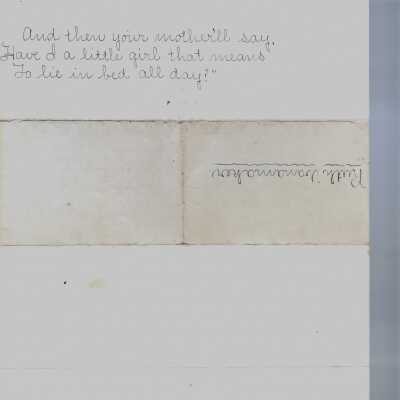 And then your mother'll say,
"Have I a little girl that means
To lie in bed all day?"
Ruth Wanamaker